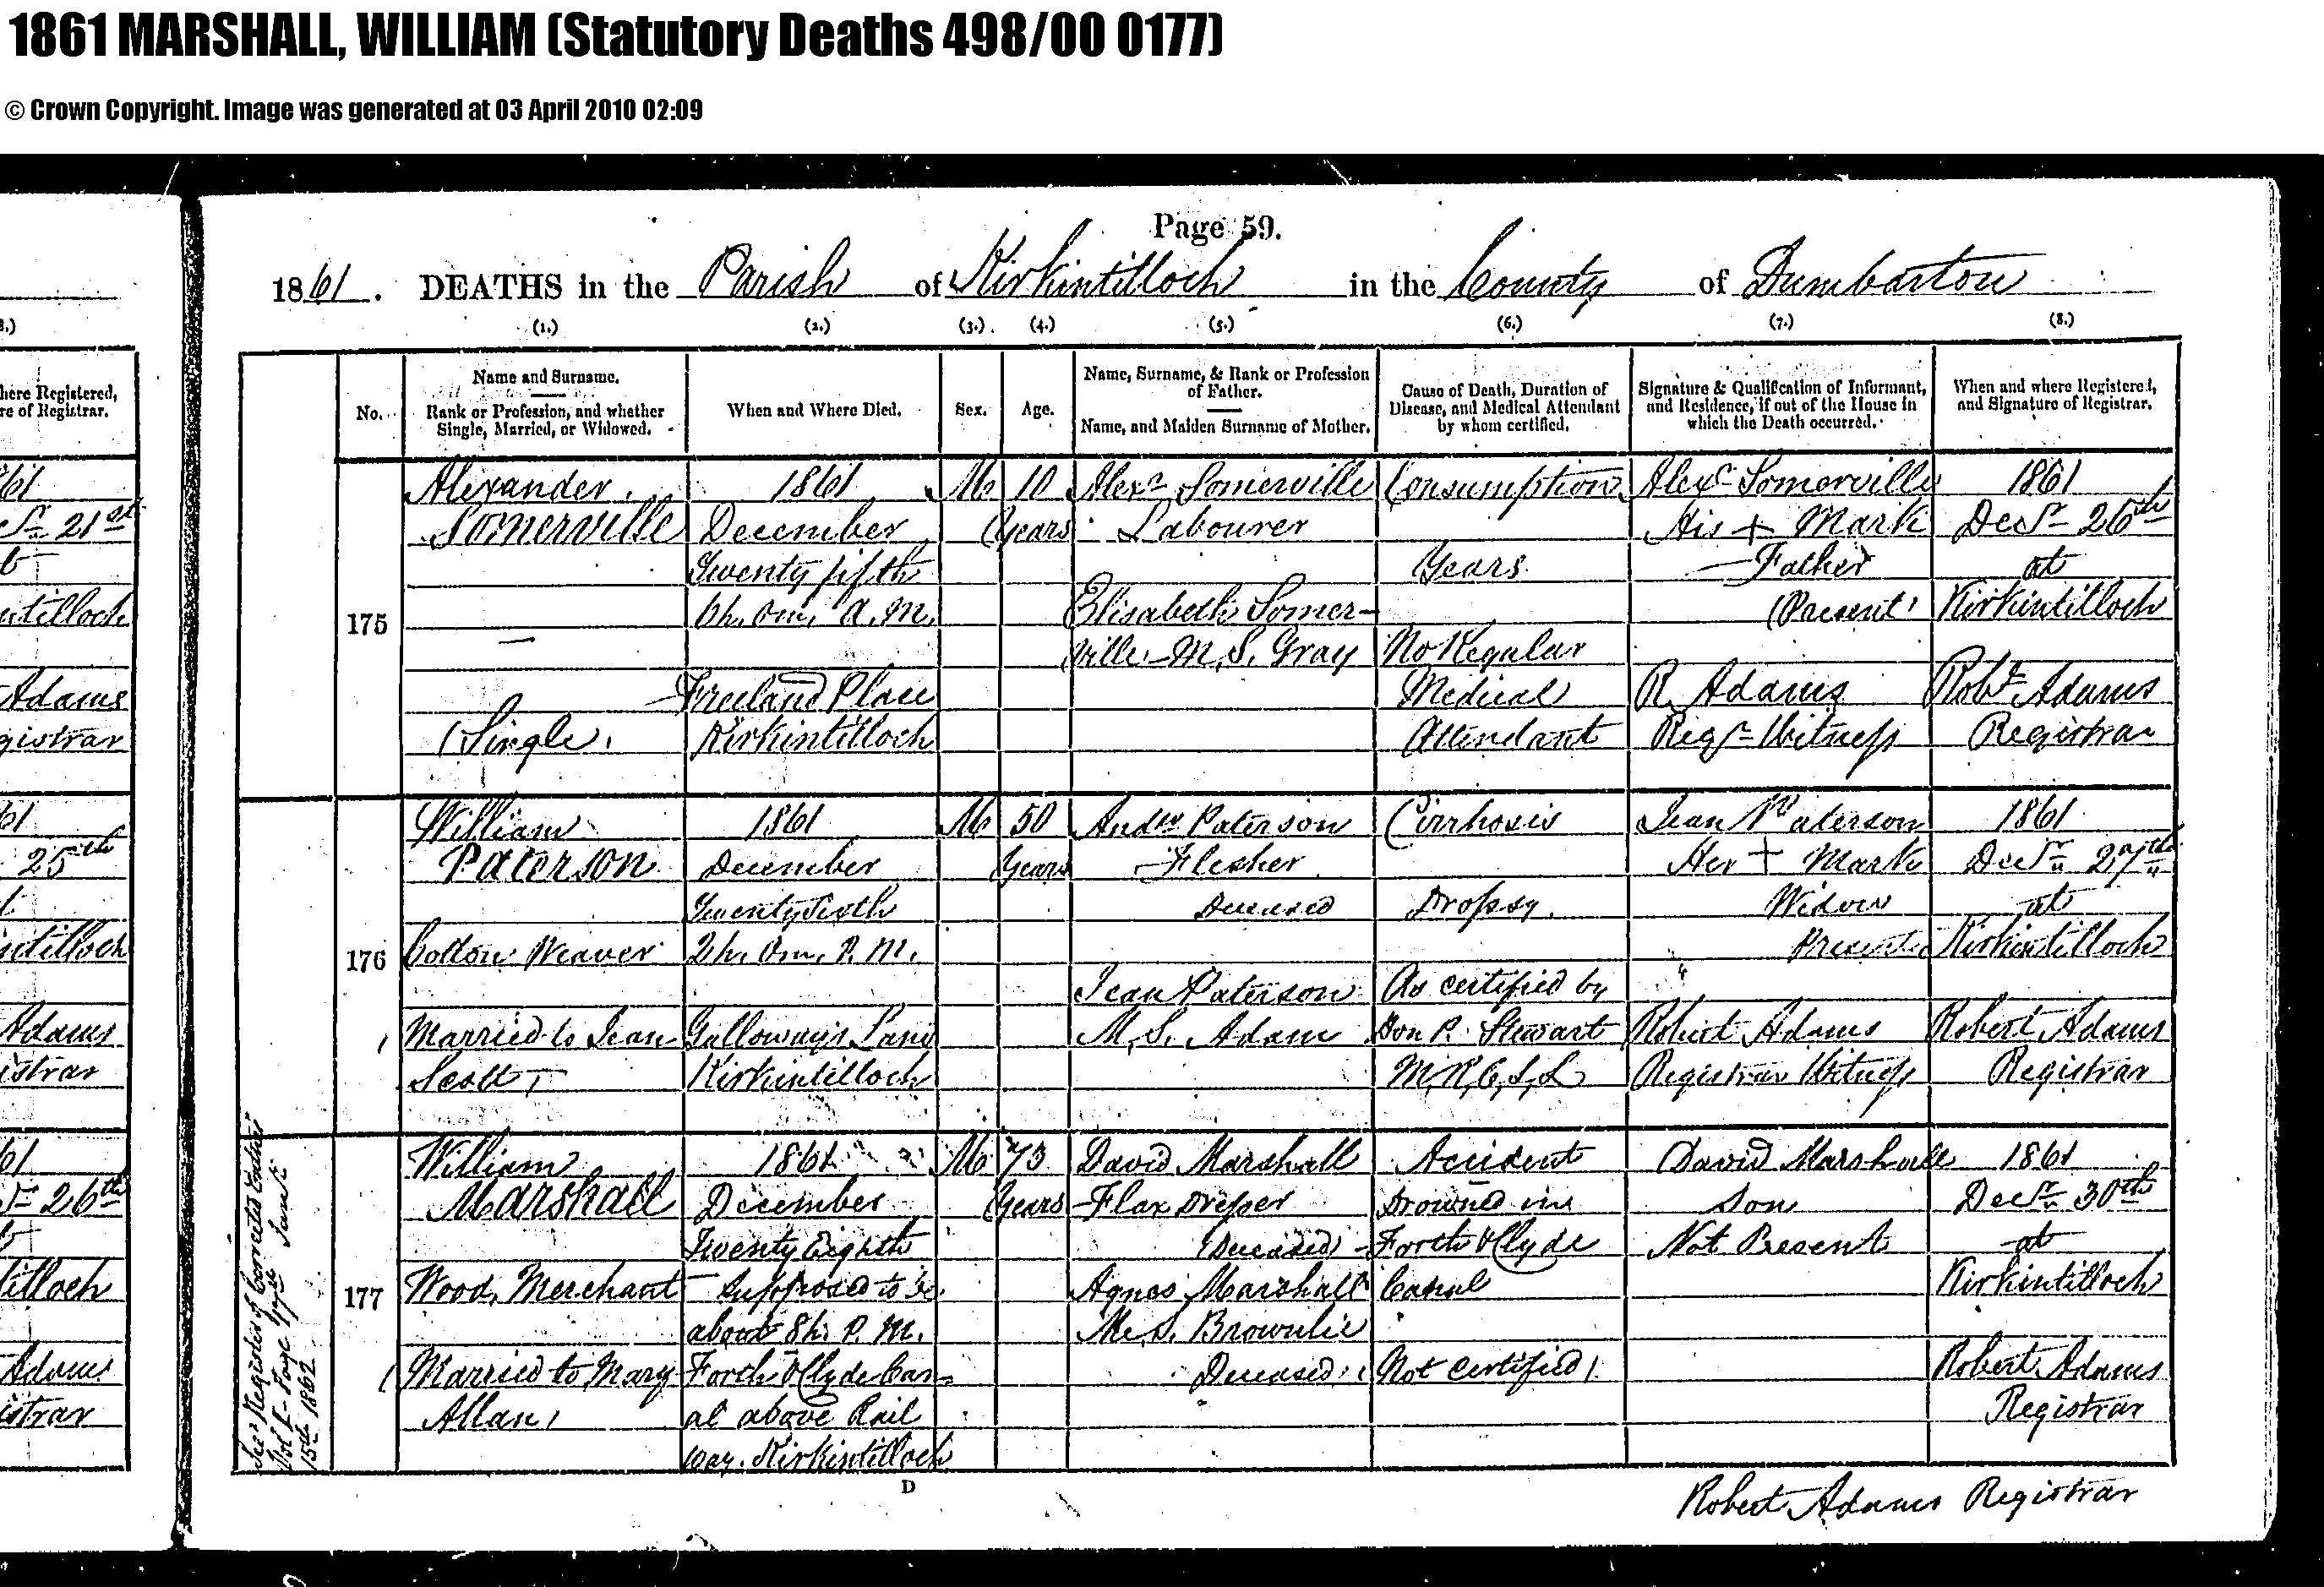 1861 MARSHALL, WILLIAM (Statutory Deaths 498/00 0177)
© Crown Copyright. Image was generated at 03 April 2010 02:09
Page 59.
1861. DEATHS in the Parish of Kirkintilloch in the County of Dumbarton
(1.) (2.) (3.) (4.) (5.) (6.) (7.) (8.)
No.
Name and Surname.
Rank or Profession, and whether
Single, Married, or Widowed.
When and Where Died.
Sex.
Age.
Name, Surname, & Rank or Profession
of Father.
Name, and Maiden Surname of Mother.
Cause of Death, Duration of
Disease, and Medical Attendant
by whom certified.
Signature & Qualification of Informant,
and Residence, if out of the House in
which the Death occurred.
When and where Registered,
and Signature of Registrar.
175
Alexander
Somerville
(Single)
1861
December
Twenty fifth
6h. 0m. A.M.
Freeland Place
Kirkintilloch
M
10
Years
Alexr Somerville
Labourer
Elisabeth Somer-
ville. M.S. Gray
Consumption
Years
No Regular
Medical
Attendant
Alexr Somerville
His + Mark
Father
(Present)
R. Adams
Regr Witness
1861
Decr 26th
at
Kirkintilloch
Robt Adams
Registrar
176
William
Paterson
Cotton Weaver
(Married to Jean
Scott)
1861
December
Twenty Sixth
2h. 0m. P.M.
Galloway's Land
Kirkintilloch
M
50
Years
Andw Paterson
Flesher
Deceased
Jean Paterson
M.S. Adam
Cirrhosis
Dropsy.
As certified by
Don P. Stewart
M.R.C.S.L
Jean Paterson
Her + Mark
Widow
Present
Robert Adams
Registrar Witness
1861
Decr 27th
at
Kirkintilloch
Robert Adams
Registrar
See Register of Corrected Entries
Vol I - Page
15th 1862
177
William
Marshall
Wood Merchant
(Married to Mary
Allan)
1861
December
Twenty Eighth
Supposed to be
about 8h. P.M.
Forth & Clyde Can-
al above Rail
way. Kirkintilloch
M
73
Years
David Marshall
Flax Dresser
(Deceased)
Agnes Marshall
M.S. Brownlie
Deceased
Accident
Drowned in
Forth & Clyde
Canal
(Not certified)
David Marshall
Son
Not Present
1861
Decr 30th
at
Kirkintilloch
Robert Adams
Registrar
D
Robert Adams Registrar